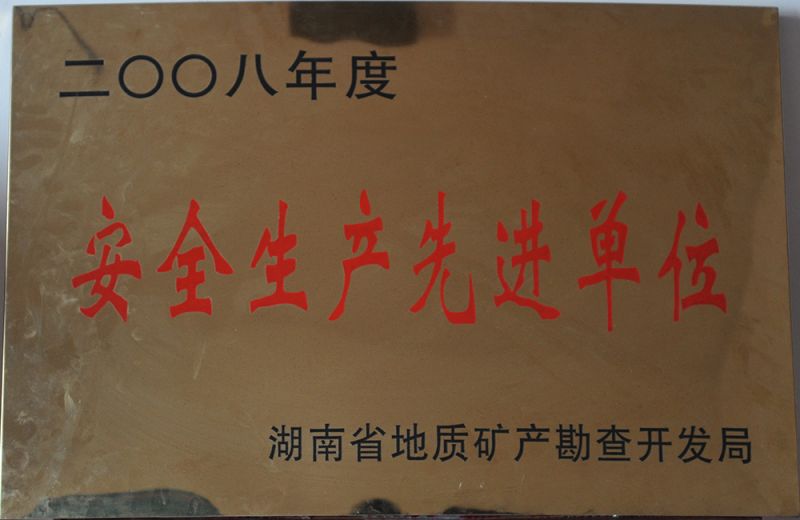 二〇〇八年度
安全生产先进单位
湖南省地质矿产勘查开发局